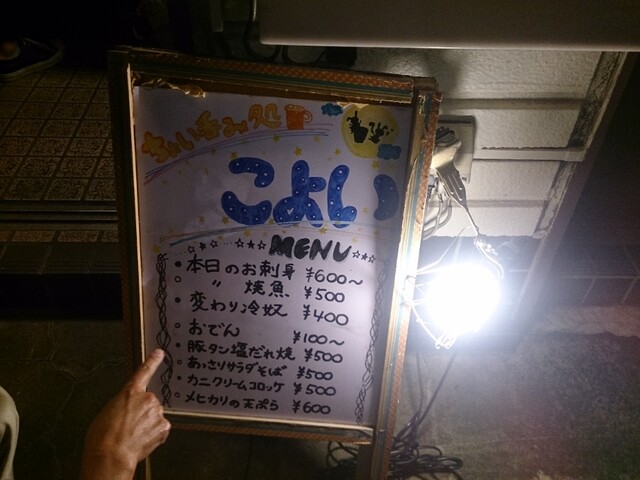 ちょい呑み処
こよい
MENU
本日のお刺身 ¥600〜
〃 焼魚 ¥500
変わり冷奴 ¥400
おでん ¥100〜
豚タン塩だれ焼 ¥500
あっさりサラダそば ¥500
カニクリームコロッケ ¥500
メヒカリの天ぷら ¥600